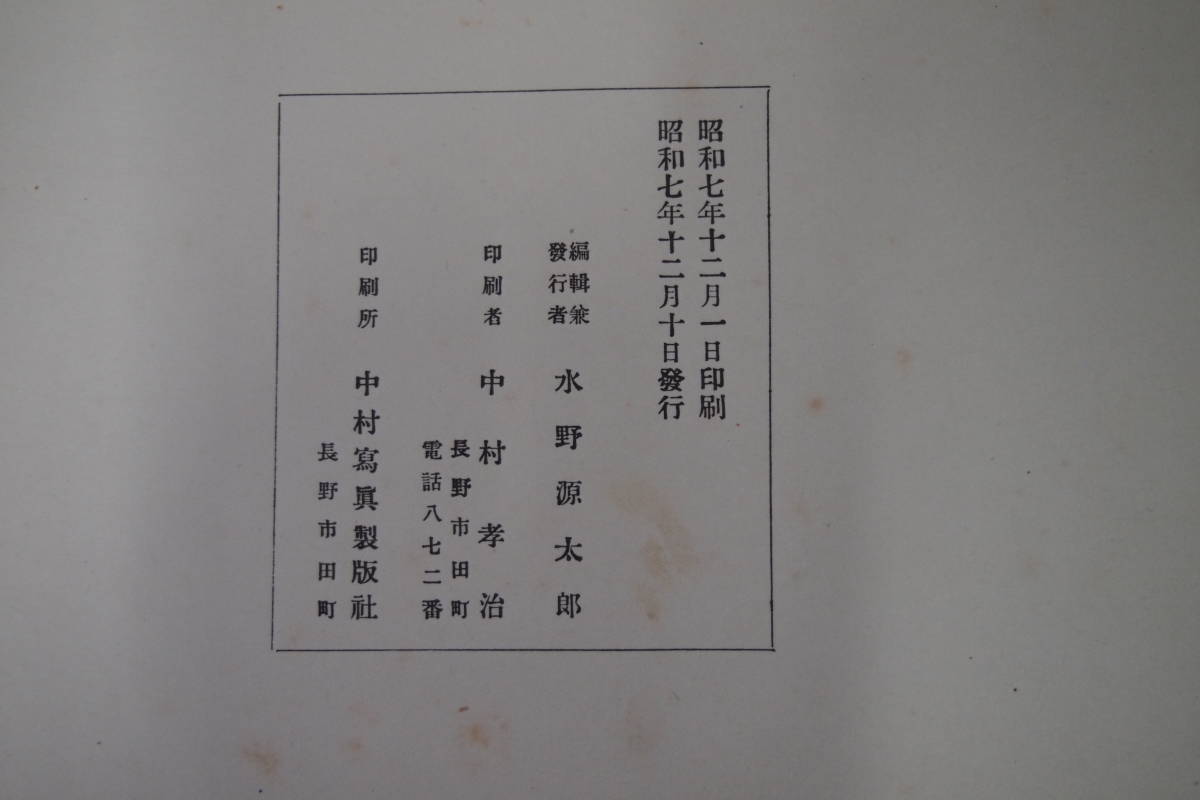 昭和七年十二月一日印刷
昭和七年十二月十日發行
編輯兼
發行者
水野源太郎
印刷者
中村孝治
長野市田町
電話八七二番
印刷所
中村寫眞製版社
長野市田町